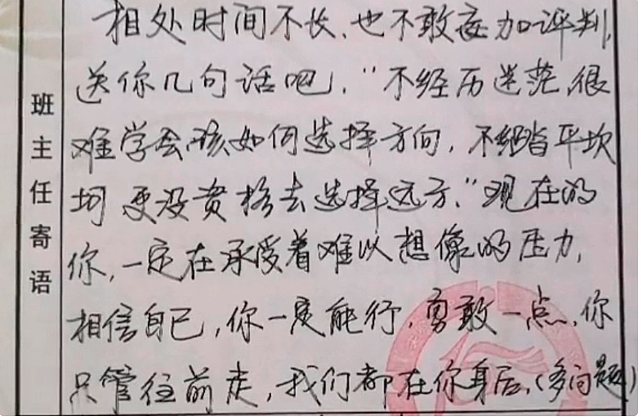 班主任寄语
相处时间不长,也不敢妄加评判,
送你几句话吧,"不经历迷茫,很
难学会该如何选择方向,不经踏平坎
坷 更没资格去选择远方。"现在的
你,一定在承受着难以想像的压力,
相信自己,你一定能行,勇敢一点,你
只管往前走,我们都在你身后,(多问题)